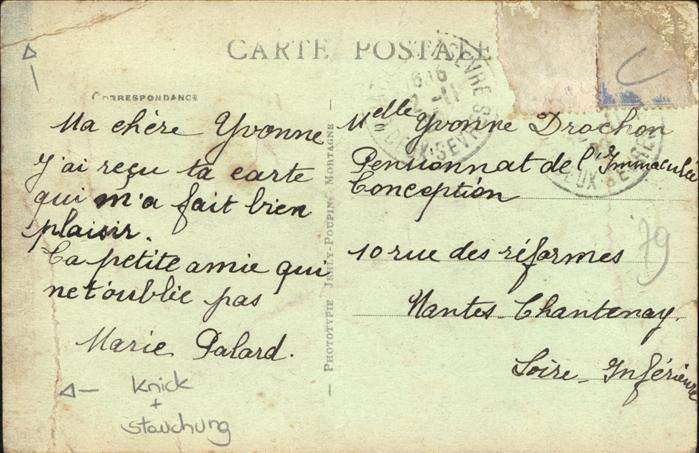 CARTE POSTALE
CORRESPONDANCE
Ma chère Yvonne
J'ai reçu ta carte
qui m'a fait bien
plaisir.
Ta petite amie qui
ne t'oublie pas
Marie Palard.
Knick
+
stauchung
PHOTOTYPIE JEHLY-POUPIN, MORTAGNE
Melle Yvonne Drochon
Pensionnat de l'Immaculée
Conception
10 rue des réformes
Nantes-Chantenay.
Loire-Inférieure
79